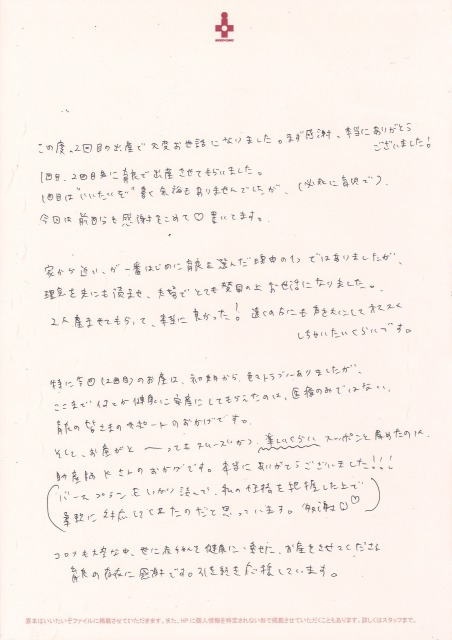 この度、2回目の出産で大変お世話になりました。まず感謝、本当にありがとう
ございました!
1回目、2回目共に育良で出産させてもらいました。
1回目は"いいたいぞ"書く余裕もありませんでしたが、(必死に育児で)、
今回は前回分も感謝をこめて♡書いてます。
家から近い、が一番はじめに育良を選んだ理由の1つではありましたが、
理念を先にも読ませ、夫婦でとても賛同の上お世話になりました。
2人産ませてもらって、本当に良かった! 遠くの方にも声を大にしてオススメ
しちゃいたいくらいです。
特に今回(2回目)のお産は、初期から、色々トラブルありましたが、
ここまで 健康に安産にしてもらえたのは、医療のみではない、
育良の皆さまのサポートのおかげです。
そして、お産がと〜ってもスムーズ(かつ、楽しいくらいにスッポンと産めたのは、
助産師Kさんのおかげです。本当にありがとうございました!!!
(バースプランをしっかり読んで、私の性格を把握した上で
柔軟に対応してくれたのだと思っています。感謝♡♡)
コロナも大変な中、母子ともに健康に 、お産をさせてくださる
育良の存在に感謝です。引き続き応援しています。
原本はいいたいぞファイルに掲載させていただきます。また、HPに個人情報を特定されないお形で掲載させていただくこともあります。詳しくはスタッフまで。